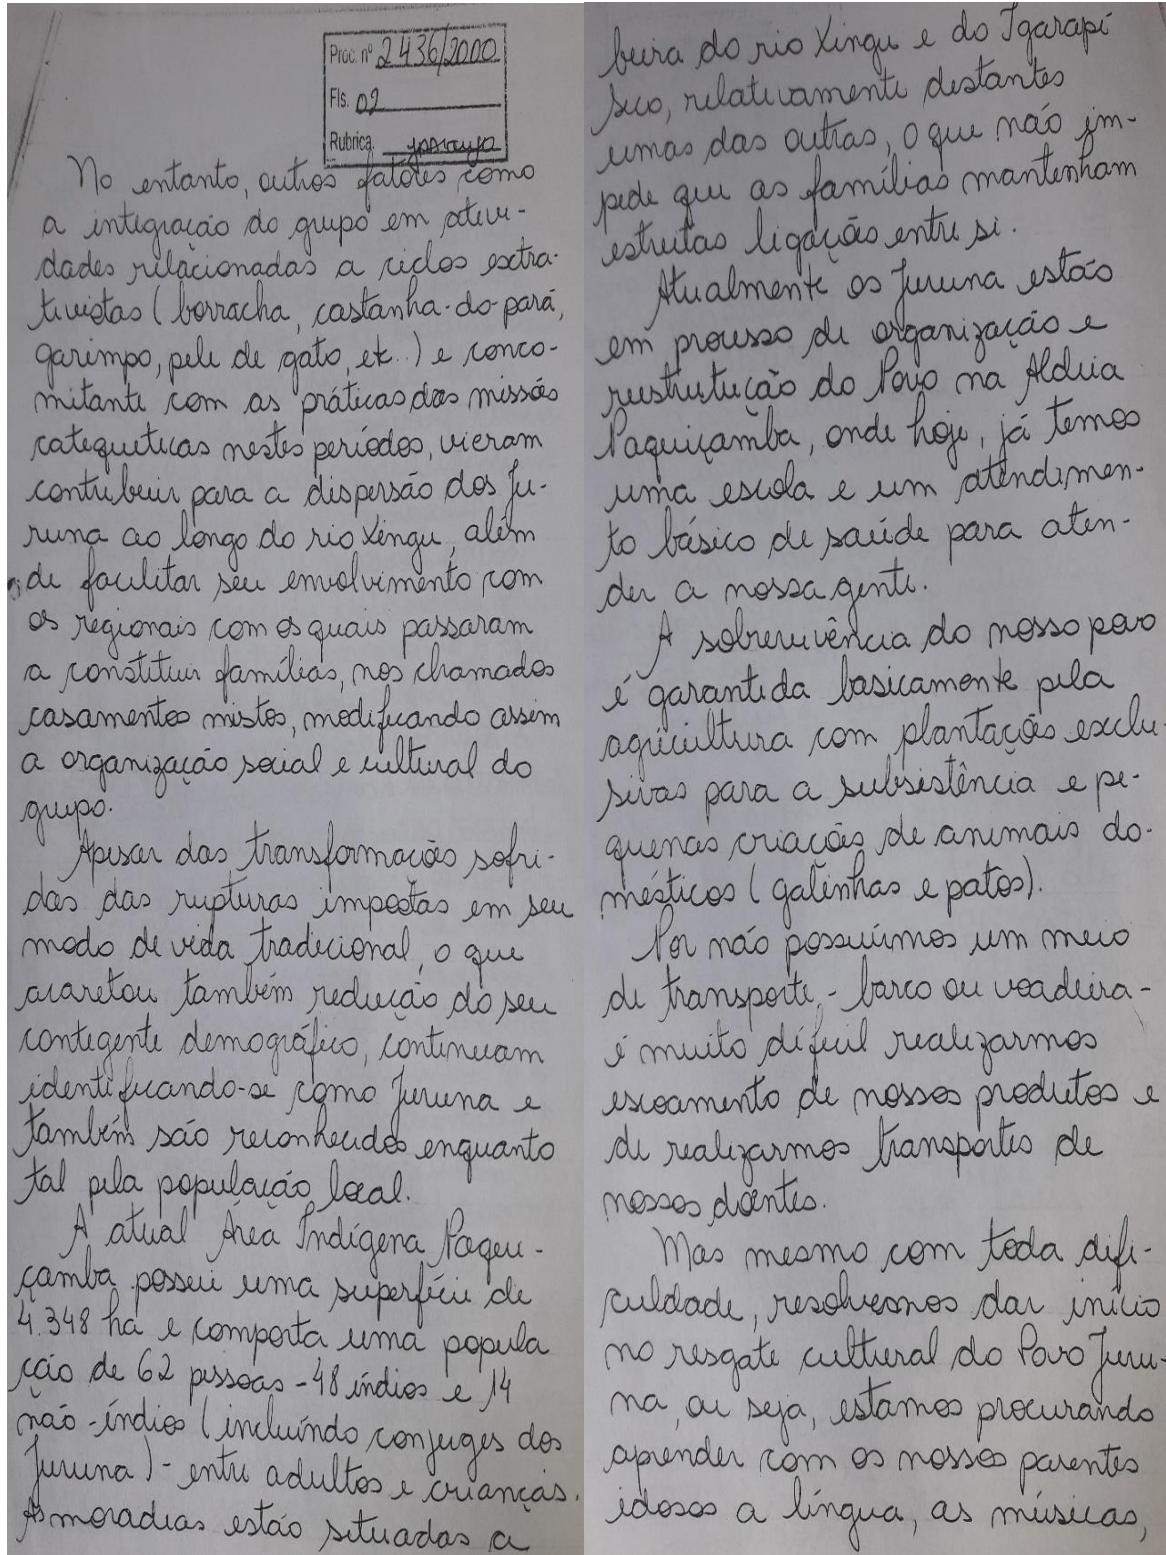 Proc. nº 2436/2000
Fls. 02
Rubrica
No entanto, outros fatores como
a integração do grupo em ativi-
dades relacionadas a ciclos extra-
tivistas (borracha, castanha-do-pará,
garimpo, pele de gato, etc.) e conco-
mitante com as práticas das missões
catequeticas nestes períodos, vieram
contribuir para a dispersão dos Ju-
runa ao longo do rio Xingu, além
de facilitar seu envolvimento com
os regionais com os quais passaram
a constituir famílias, nos chamados
casamentos mistos, modificando assim
a organização social e cultural do
grupo.
Apesar das transformações sofri-
das das rupturas impostas em seu
modo de vida tradicional, o que
acaretou também redução do seu
contegente demográfico, continuam
identificando-se como Juruna e
também são reconhecidos enquanto
tal pela população local.
A atual Área Indígena Paqui-
çamba possui uma superfície de
4.348 ha e comporta uma popula
ção de 62 pessoas - 48 índios e 14
não-índios (incluíndo conjuges dos
Juruna) - entre adultos e crianças.
As moradias estão situadas a
beira do rio Xingu e do Igarapé
seco, relativamente distantes
umas das outras, o que não im-
pede que as famílias mantenham
estreitas ligações entre si.
Atualmente os Juruna estão
em processo de organização e
reestrutução do Povo na Aldeia
Paquiçamba, onde hoje, já temos
uma escola e um atendimen-
to básico de saúde para aten-
der a nossa gente.
A sobrevivência do nosso povo
é garantida basicamente pela
agricultura com plantações exclu-
sivas para a subsistência e pe-
quenas criações de animais do-
mésticos (galinhas e patos).
Por não possuírmos um meio
de transporte - barco ou voadeira -
é muito difícil realizarmos
escoamento de nossos produtos e
de realizarmos transportes de
nossos doentes.
Mas mesmo com toda difi-
culdade, resolvemos dar início
no resgate cultural do Povo Juru-
na, ou seja, estamos procurando
aprender com os nossos parentes
idosos a língua, as músicas,